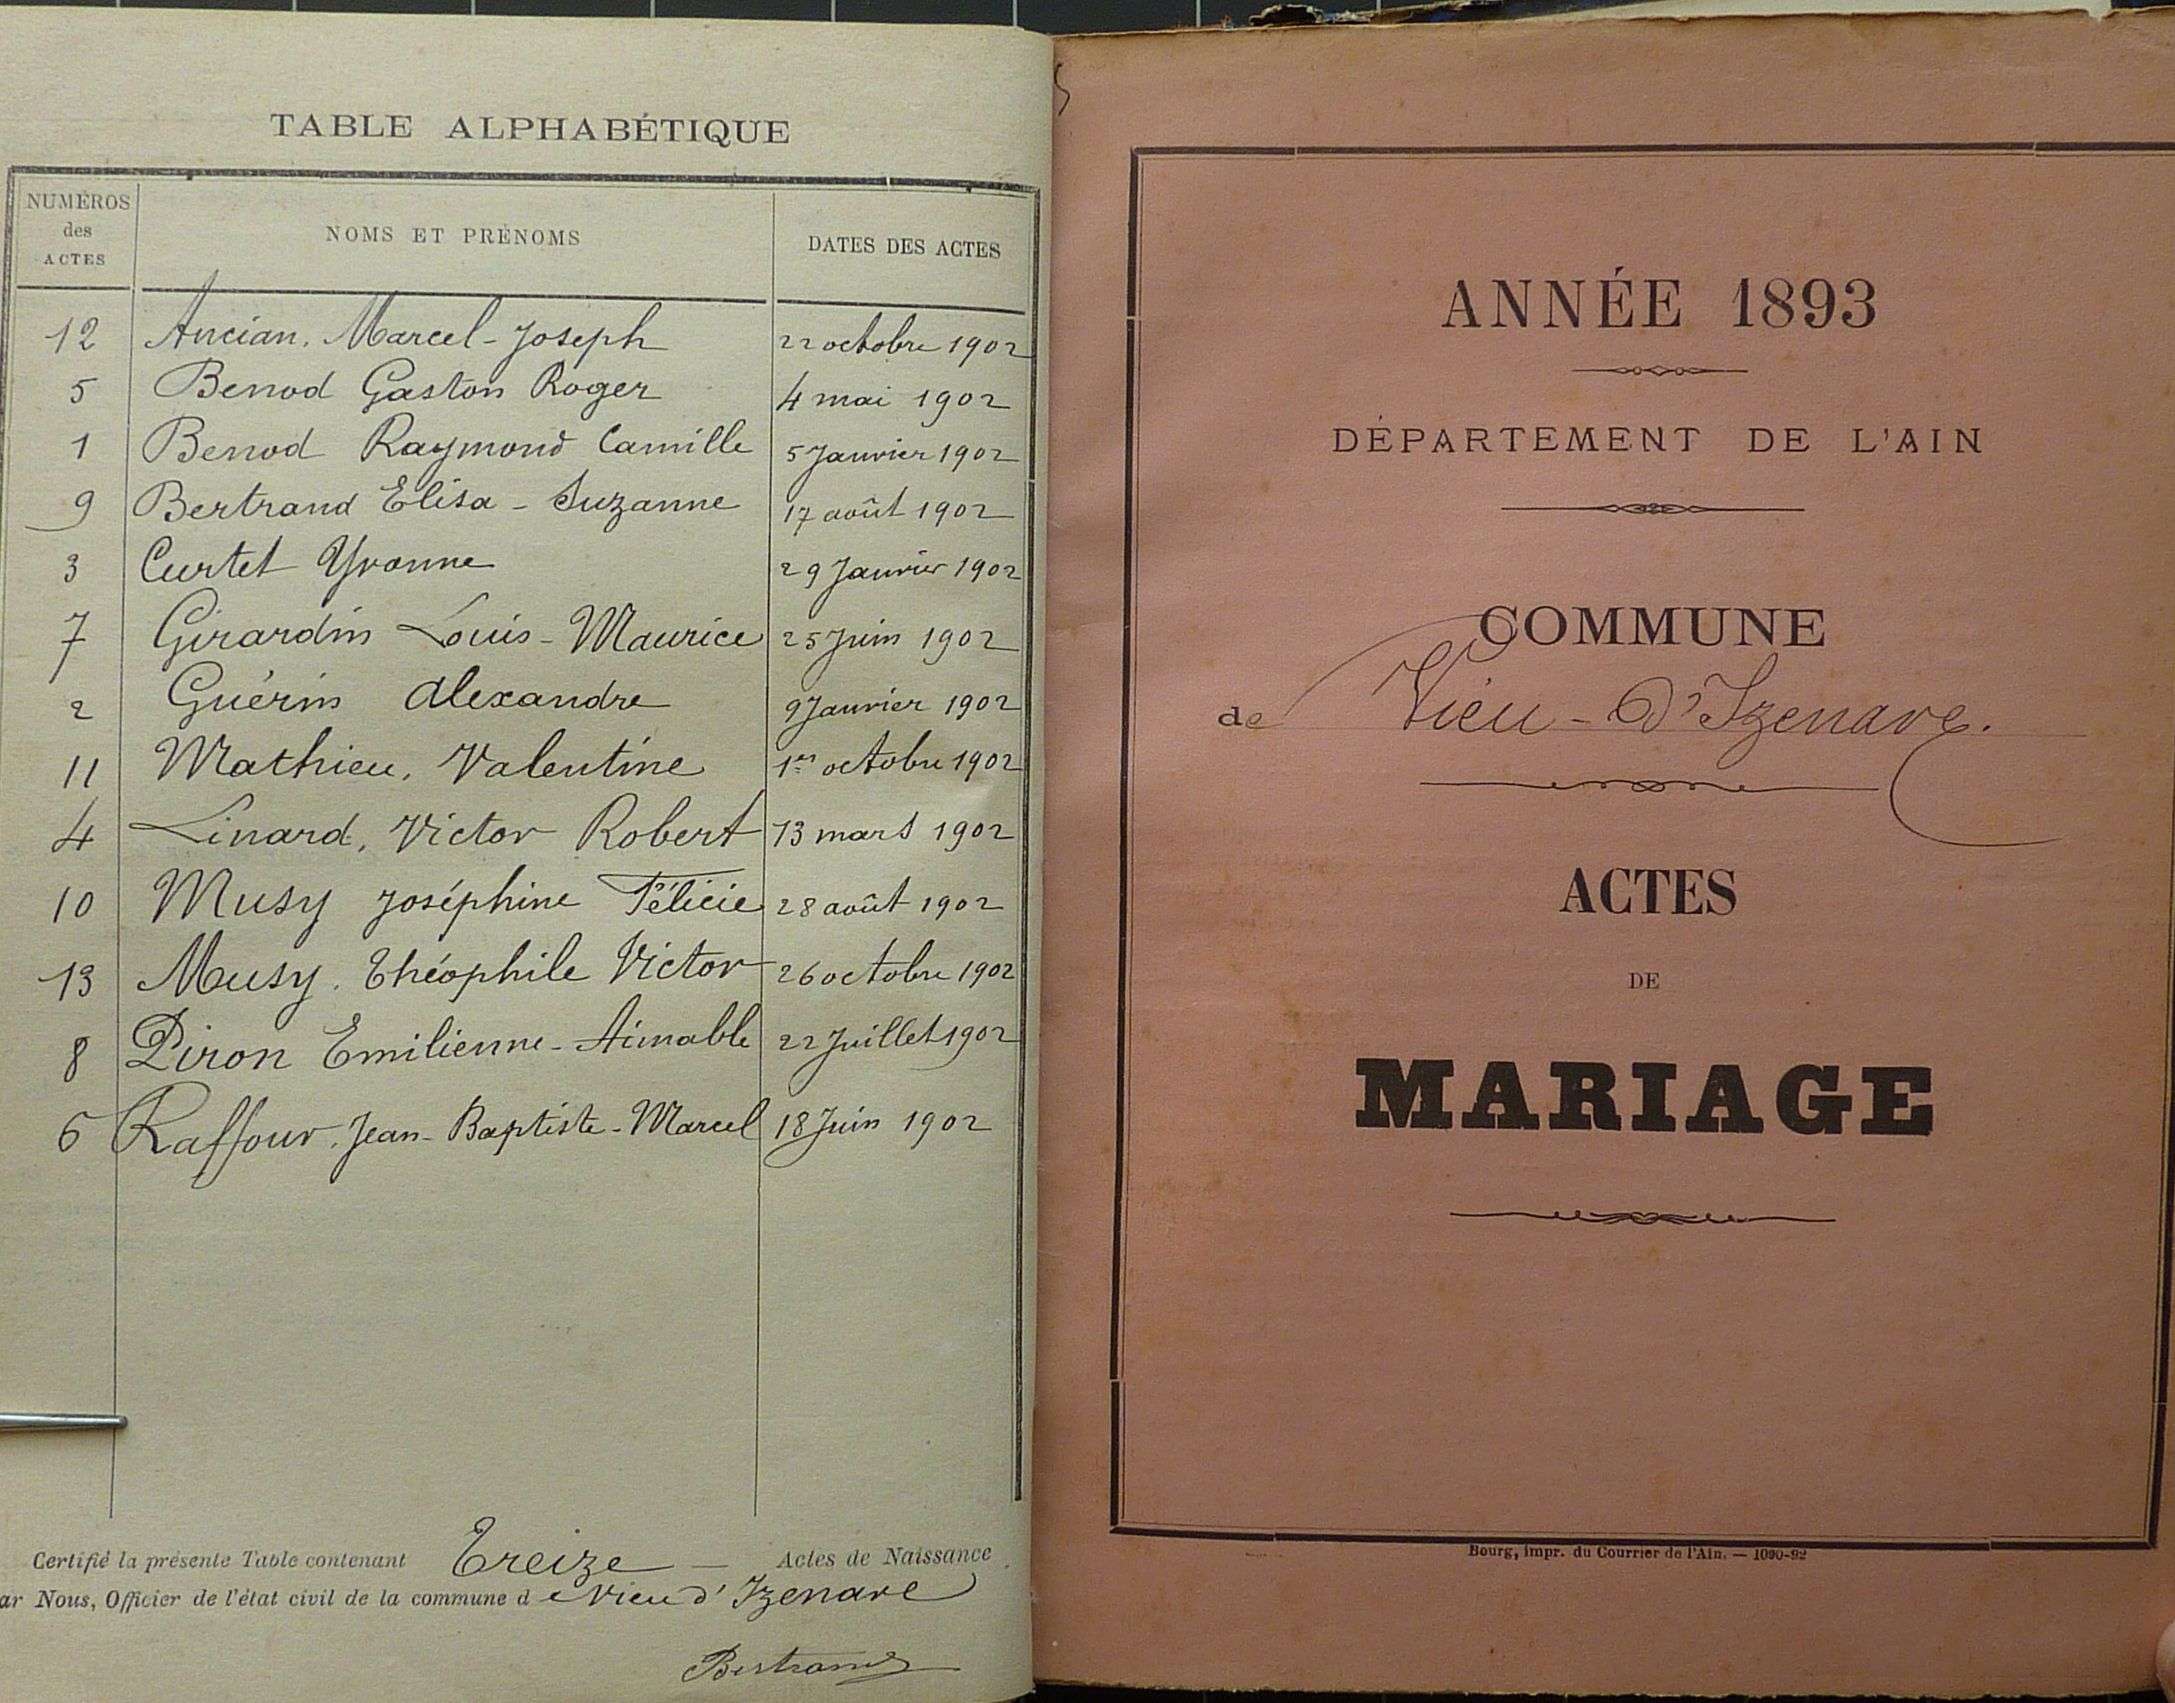 TABLE ALPHABÉTIQUE
NUMÉROS des ACTES NOMS ET PRÉNOMS DATES DES ACTES
12 Ancian, Marcel-Joseph 22 octobre 1902
5 Benod Gaston Roger 4 mai 1902
1 Benod Raymond Camille 5 Janvier 1902
9 Bertrand Elisa-Suzanne 17 août 1902
3 Curtet Yvonne 29 Janvier 1902
7 Girardin Louis-Maurice 25 Juin 1902
2 Guérin Alexandre 9 Janvier 1902
11 Mathieu, Valentine 1er octobre 1902
4 Linard, Victor Robert 13 mars 1902
10 Musy Joséphine Félicie 28 août 1902
13 Musy, Théophile Victor 26 octobre 1902
8 Piron Emilienne-Aimable 22 Juillet 1902
6 Raffour, Jean-Baptiste-Marcel 18 Juin 1902
Certifié la présente Table contenant Treize — Actes de Naissance
ar Nous, Officier de l'état civil de la commune de Vieu d'Izenave
Bertrand
ANNÉE 1893
DÉPARTEMENT DE L'AIN
COMMUNE
de Vieu-d'Izenave.
ACTES
DE
MARIAGE
Bourg, impr. du Courrier de l'Ain. — 1090-92